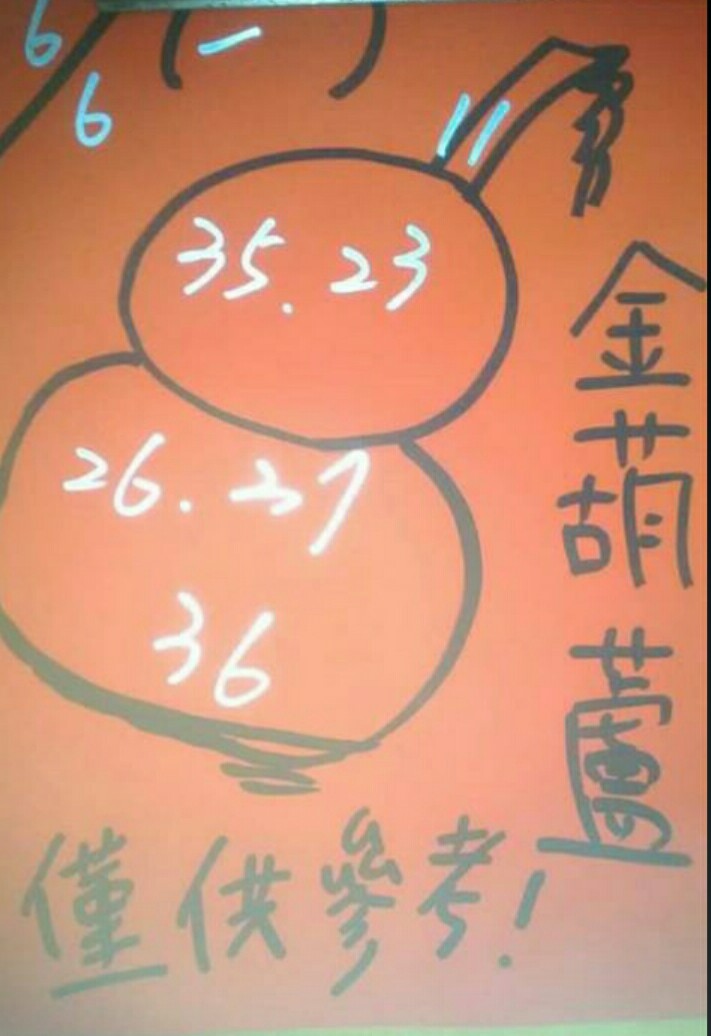 6/6 (一)
11
35.23
26.37
36
金葫蘆
僅供參考!